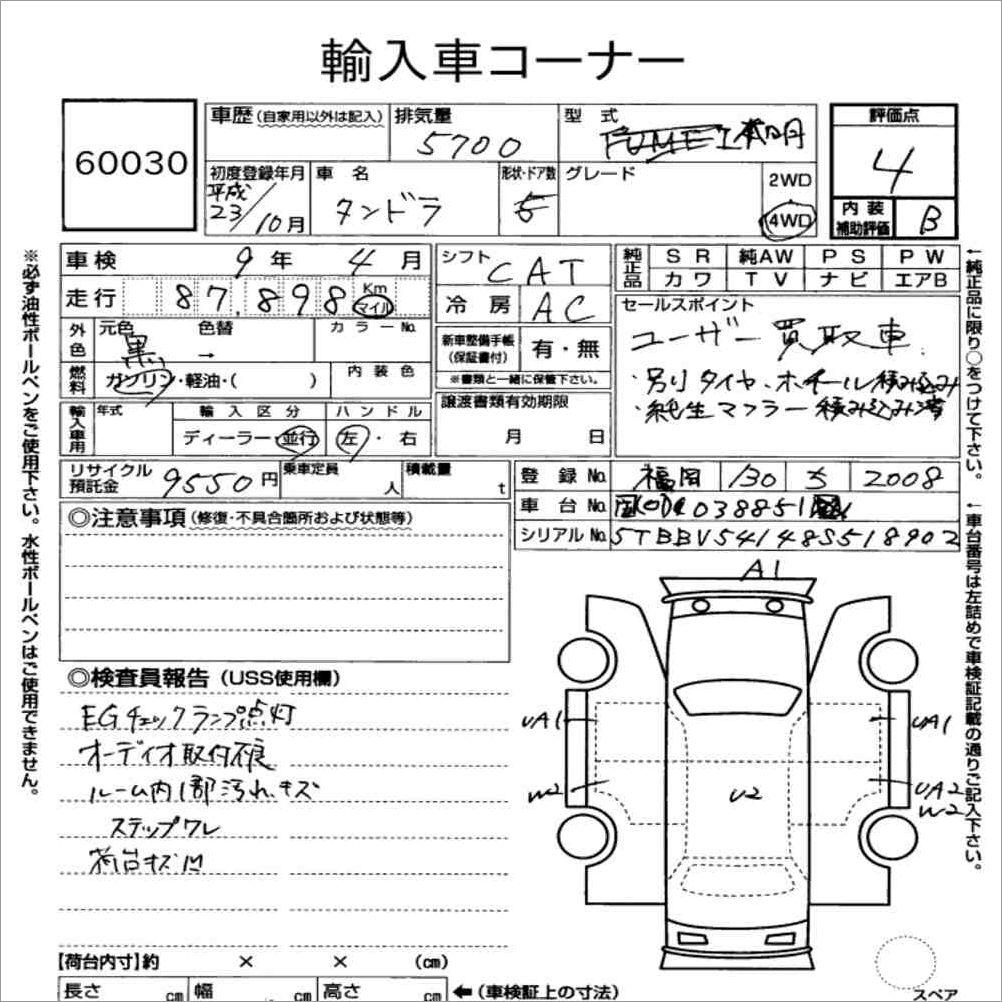 輸入車コーナー
60030
車歴(自家用以外は記入)
排気量
5700
型 式
評価点
4
初度登録年月
平成
23/10月
車 名
タンドラ
形状・ドア数
5
グレード
2WD
4WD
内 装
補助評価
B
車検 9年 4月
走行 87,898 Km
マイル
外色
元色
黒
色替
→
カラーNo.
燃料
ガソリン・軽油・( )
内 装 色
輸入車用
年式
輸 入 区 分
ディーラー・並行
ハ ン ド ル
左・右
シフト
CAT
冷 房
AC
新車整備手帳
(保証書付)
有・無
※書類と一緒に保管下さい。
譲渡書類有効期限
月 日
純正品
S R 純AW P S P W
カワ T V ナビ エアB
セールスポイント
ユーザー買取車
・別りタイヤ・ホイール積み込み
・純生マフラー積み込み済
リサイクル
預託金
9550円
乗車定員
人
積載量
t
登 録 No. 福岡 130 ち 2008
車 台 No.
シリアル No. 5TBBV54148S518902
◎注意事項(修復・不具合箇所および状態等)
◎検査員報告(USS使用欄)
EGチェックランプ点灯
オーディオ取付不良
ルーム内1部汚れ、キズ
ステップワレ
荷台キズ凹
A1
UA1
UA1
W2
U2
UA2
W2
【荷台内寸】約 × × (cm)
長さ cm 幅 cm 高さ cm
←(車検証上の寸法)
スペア
※必ず油性ボールペンをご使用下さい。水性ボールペンはご使用できません。
←純正品に限り○をつけて下さい。
←車台番号は左詰めで車検証記載の通りご記入下さい。